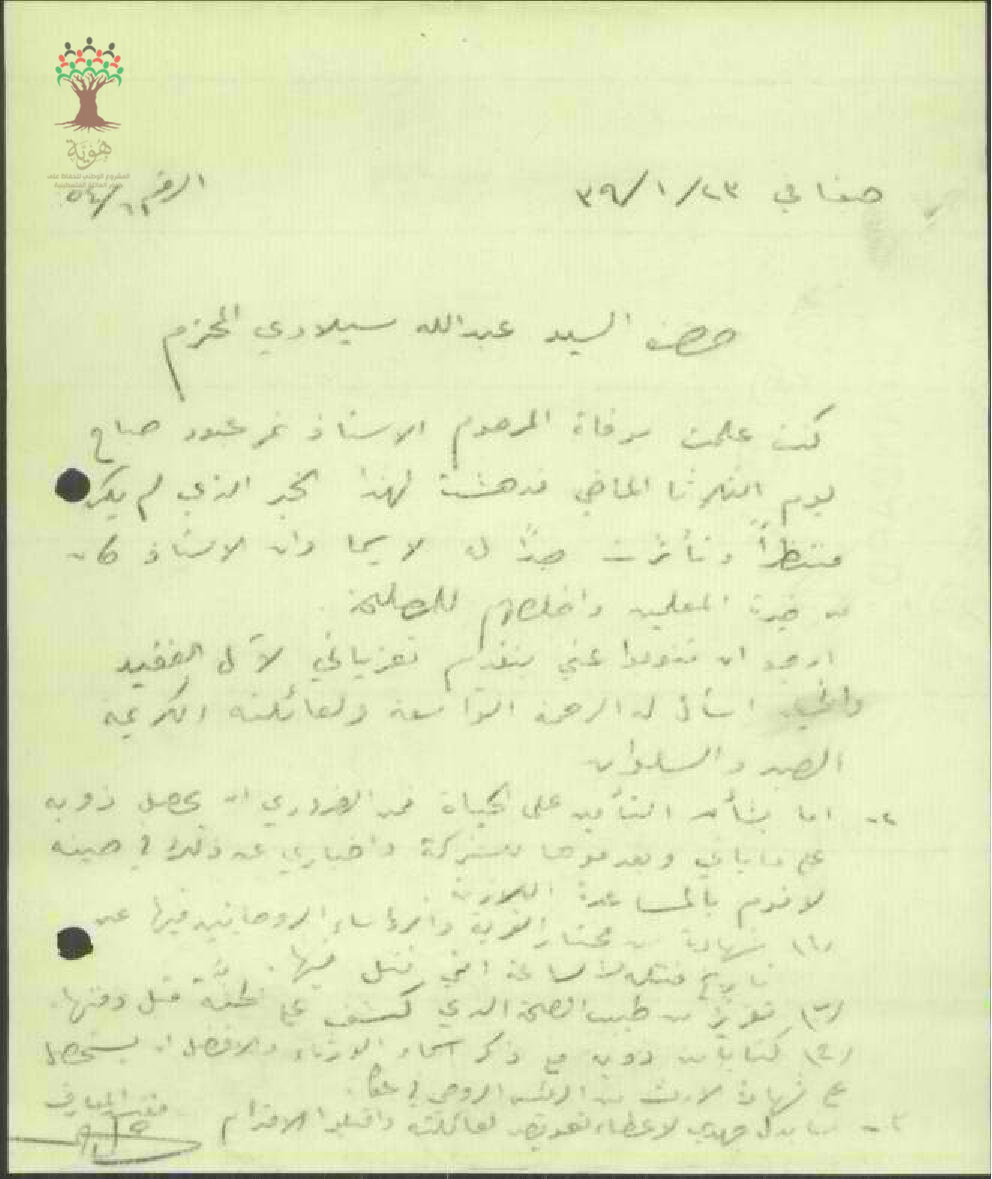 هوية
المشروع الوطني للحفاظ على
جذور العائلة الفلسطينية
الرقم ٥٤/
صفا في ٢٣/١/٣٩
حضرة السيد عبدالله سيلاوي المحترم
كنت علمت بوفاة المرحوم الاستاذ نمر عبود صباح
يوم الثلاثا الماضي فدهشت لهذا الخبر الذي لم يكن
منتظراً وتأثرت جداً له لا سيما وان الاستاذ كان
من خيرة المعلمين واخلصهم للمصلحة.
ارجو ان تنوبوا عني بتقديم تعزياتي لآل الفقيد
اسأل له الرحمة الواسعة ولعائلته الكريمة
الصبر والسلوان
٢- اما بشأن التأمين على الحياة فمن الضروري ان يحصل ذووه
على ما يأتي ويقدموها للشركة واخباري عن ذلك في حينه
لاقوم بالمساعدة اللازمة
(١) شهادة من مختار القرية والرؤساء الروحانيين فيها عن
تاريخ قتله والساعة التي قتل فيها.
تقرير من طبيب الصحة الذي كشف على الجثة قبل دفنها.
كتاب من ذويه مع ذكر اسماء الورثاء والافضل ان يستحصل
على شهادة لارث من الرئيس الروحي في عكا.
٣- سابذل جهدي لاعطاء تعويض لعائلته واقبلوا الاحترام
مفتش المعارف